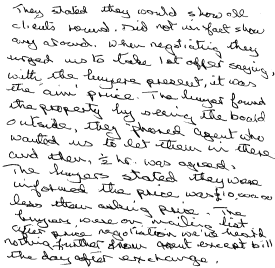 They stated they would show all
clients round. Did not in fact show
any around. When negotiating they
urged us to take 1st offer saying,
with the buyers present, it was
the 'aim' price. The buyer found
the property by seeing the board
outside, they phoned agent who
wanted us to let them in there
and then, ½ hr. was agreed.
The buyers stated they were
informed the price was £10,000.00
less than asking price. The
buyers were on mailing list
after price negotiation we've heard
nothing further from agent except bill
the day after exchange.